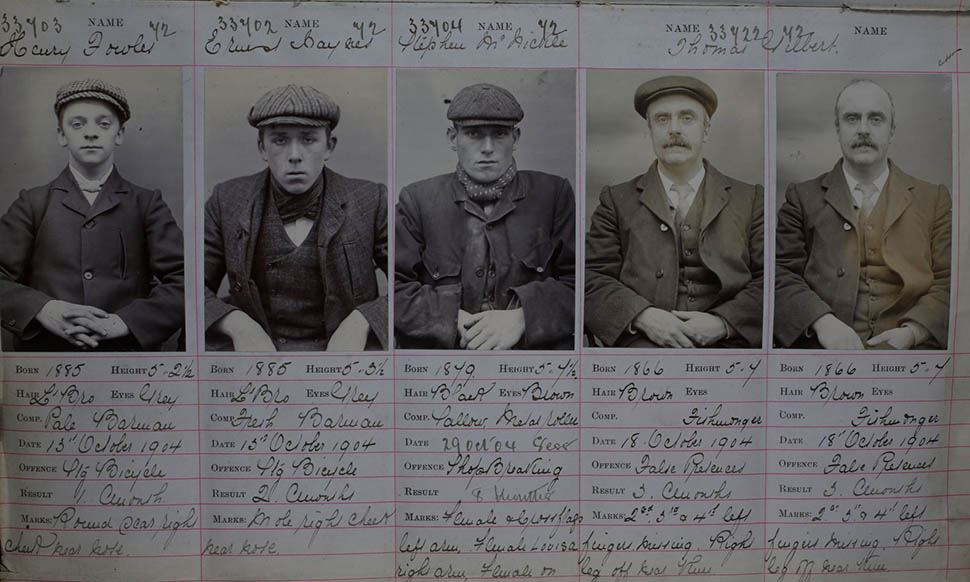 33703 NAME 72
Henry Fowles
33702 NAME 72
Ernest Haynes
33704 NAME 72
Stephen McNickle
NAME 33722 72
Thomas Wilbert.
NAME
BORN 1885 HEIGHT 5-2½
HAIR L'Bro EYES Grey
COMP. Pale Barman
DATE 13th October 1904
OFFENCE Stg Bicycle
RESULT 1. Month
MARKS: Round Scar right
cheek near nose.
BORN 1885 HEIGHT 5-3½
HAIR L'Bro EYES Grey
COMP. Fresh Barman
DATE 13th October 1904
OFFENCE Stg Bicycle
RESULT 2. Months
MARKS: Mole right cheek
near nose
BORN 1879 HEIGHT 5-4½
HAIR Black EYES Brown
COMP. Sallow, Metal roller
DATE 29 Oct 04 Sess
OFFENCE Shop Breaking
RESULT 8 Months
MARKS: Female & Cross flags
left arm, Female Louisa
right arm, Female on
BORN 1866 HEIGHT 5-4
HAIR Brown EYES
COMP. Fishmonger
DATE 18. October 1904
OFFENCE False Pretences
RESULT 3. Months
MARKS: 2nd, 3rd & 4th left
fingers missing. Right
leg off near knee
BORN 1866 HEIGHT 5-4
HAIR Brown EYES
COMP. Fishmonger
DATE 18th October 1904
OFFENCE False Pretences
RESULT 3. Months
MARKS: 2nd 3rd & 4th left
fingers missing, Right
leg off near knee